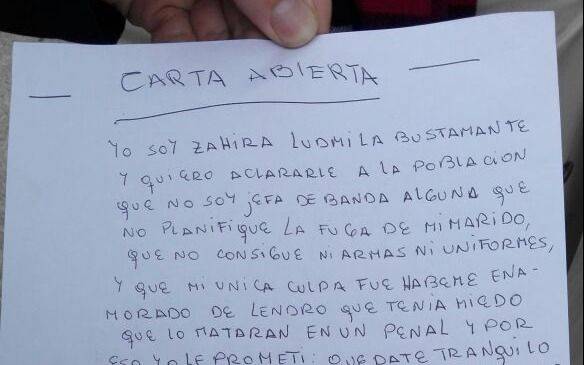 CARTA ABIERTA
YO SOY ZAHIRA LUDMILA BUSTAMANTE
Y QUIERO ACLARARLE A LA POBLACION
QUE NO SOY JEFA DE BANDA ALGUNA QUE
NO PLANIFIQUE LA FUGA DE MI MARIDO,
QUE NO CONSIGUE NI ARMAS NI UNIFORMES,
Y QUE MI UNICA CULPA FUE HABEME ENA-
MORADO DE LENDRO QUE TENIA MIEDO
QUE LO MATARAN EN UN PENAL Y POR
ESO YO LE PROMETI: QUEDATE TRANQUILO